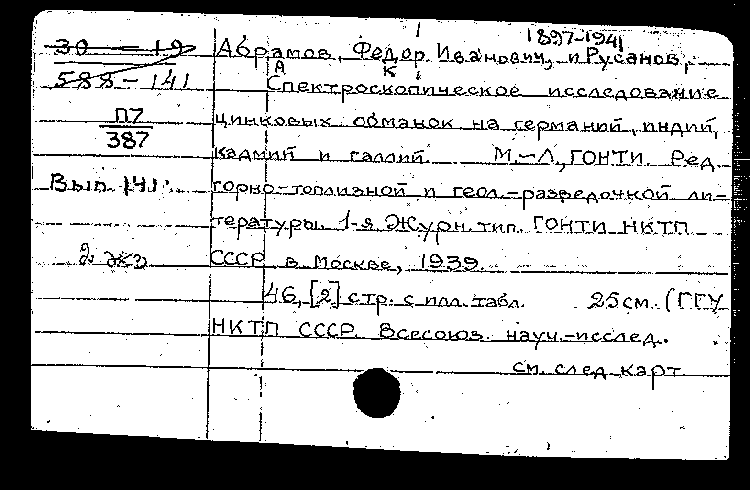 1897-1941
30 — 19 Абрамов, Федор Иванович, и Русанов,
588-141 А К
Спектроскопическое исследование
П7 цинковых обманок на германий, индий,
387
кадмий и галлий. М.-Л., ГОНТИ. Ред.
Вып. 141. горно-топливной и геол.-разведочной ли-
тературы. 1-я Журн. тип. ГОНТИ НКТП
2 экз СССР в Москве, 1939.
46, [2] стр. с илл. табл. 25 см. (ГГУ
НКТП СССР. Всесоюз. науч.-исслед.
см. след. карт.